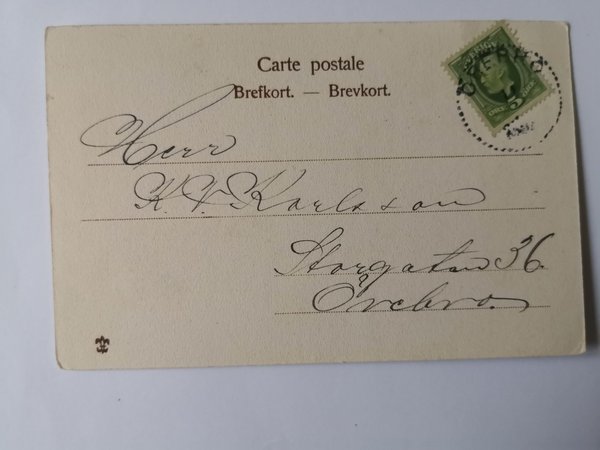 Carte postale
Brefkort. — Brevkort.
5
Herr
K. V. Karlsson
Storgatan 36
Örebro